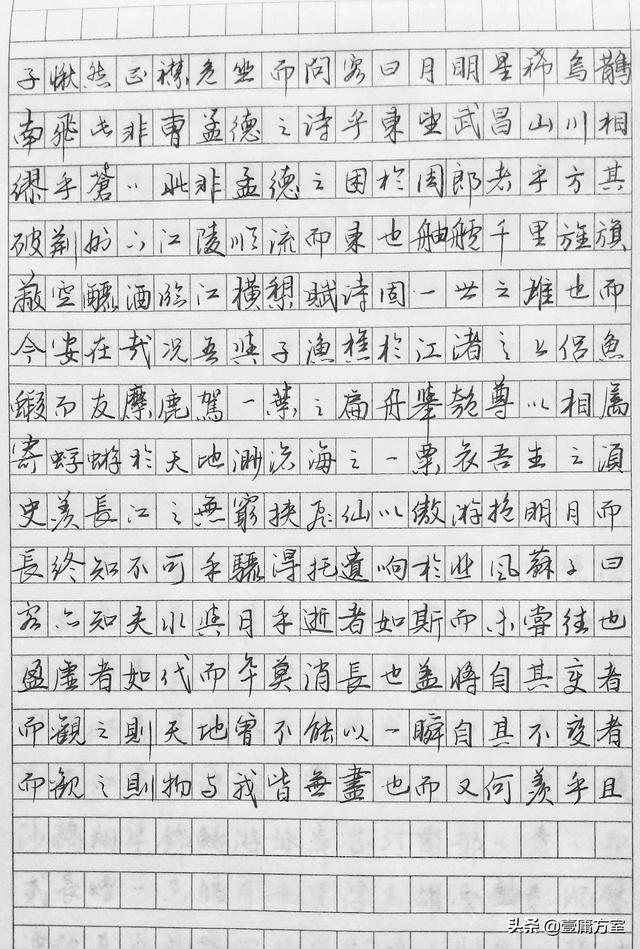 子愀然正襟危坐而問客曰月明星稀烏鵲
南飛此非曹孟德之诗乎東望武昌山川相
缪乎蒼〻此非孟德之困於周郎者乎方其
破荊州下江陵順流而東也舳艫千里旌旗
蔽空釃酒臨江横槊賦诗固一世之雄也而
今安在哉况吾與子漁樵於江渚之上侣魚
鰕而友麋鹿駕一葉之扁舟舉匏尊以相属
寄蜉蝣於天地渺滄海之一粟哀吾生之須
臾羨長江之無窮挟飛仙以傲游抱明月而
長终知不可乎驟得托遺响於悲風蘇子曰
客亦知夫水與月乎逝者如斯而未嘗往也
盈虚者如代而卒莫消長也盖將自其变者
而觀之則天地曾不能以一瞬自其不变者
而觀之則物与我皆無盡也而又何羨乎且
头条 @壹庸方室